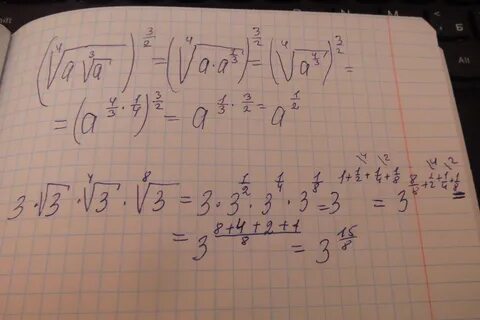 (⁴√(a ³√a))^(3/2) = (⁴√(a · a^(1/3)))^(3/2) = (⁴√(a^(4/3)))^(3/2) =
= (a^(4/3 · 1/4))^(3/2) = a^(1/3 · 3/2) = a^(1/2)
3 · √3 · ⁴√3 · ⁸√3 = 3 · 3^(1/2) · 3^(1/4) · 3^(1/8) = 3^(1 + 1/2 + 1/4 + 1/8) = 3^(8/8 + 1/2 + 1/4 + 1/8) =
= 3^((8+4+2+1)/8) = 3^(15/8)